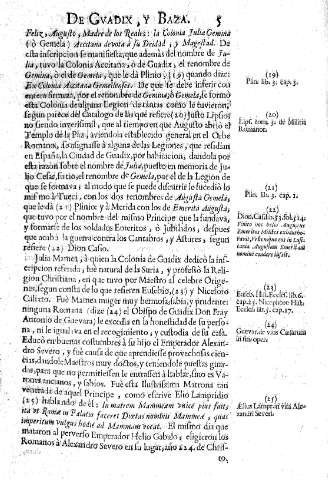 DE GVADIX, Y BAZA. 5
Feliz, Augusto, Madre de los Reales: la Colonia Julia Gemina
(ò Gemela) Accitana devota à su Deidad, y Magestad. De
esta inscripcion se manifiesta, que además del nombre de Ju-
lia, tuvo la Colonia Accitana, ò de Guadix, el renombre de
Gemina, ò el de Gemela, que le dà Plinio, (19) quando dize:
En Colonia Accitana Gemellenses. De que se debe inferir con
esta Colonia de alguna Legion
segun parece del Catalogo de las que refiere (20) Justo Lipsio
no siendo inverisimil, que al tiempo en que Augusto abriò el
Templo de la Paz, aviendola establecido general en el Orbe
Romano, se assignasse à alguna de las Legiones, que residian
en España, la Ciudad de Guadix, por habitacion, dandola por
esta razon sobre el nombre de Julia, puesto en memoria de Ju-
lio Cesar, tatio, el renombre de Gemela, por el de la Legion de
que se formava; al modo que se puede discurrir le sucediò lo
mismo à Tucci, con los dos renombres de Augusta Gemela,
que la dà (21) Plinio: y à Merida con los de Emerita Augusta,
que tuvo por el nombre del mismo Principe que la fundava,
y formarse de los soldados Emeritos, ò Jubilados, despues
que acabò la guerra contra los Cantabros, y Astures, segun
refiere (22) Dion Casio.
Julia Mamea, à quien la Colonia de Guadix dedicò la ins-
cripcion referida, fuè natural de la Suria, y professò la Reli-
gion Christiana, en que tuvo por Maestro al celebre Orige-
nes, segun consta de lo que refieren Eusebio, (23) y Niceforo
Calixto. Fuè Mamea muger muy hermosa, sabia, y prudente:
ninguna Romana (dize (24) el Obispo de Guadix Don Fray
Antonio de Guevara) le excedia en la honestidad de su perso-
na, ni le igualava en el recogimiento, y custodia de su casa.
Educò en buenas costumbres à su hijo el Emperador Alexan-
dro Severo, y fuè causa de que aprendiesse provechosas cien-
cias, dandole Maestros muy doctos, y teniendole puestas guar-
das, para que no permitiessen le entrassen à hablar, sino es Va-
rones ancianos, y sabios. Fuè esta Ilustrissima Matrona tan
venerada de aquel Principe, como escrive Elio Lampridio
(25) hablando de èl: In matrem Mammeam unicè pius fuit,
ita ut Romæ in Palatio faceret Diætas nominis Mammeæ, quas
imperitum vulgus hodiè ad Mammam vocat. El mismo dia que
mataron al perverso Emperador Helio Gabalo, eligieron los
Romanos à Alexandro Severo en su lugar, año 224. de Chris-
to,
(19)
Plin. lib. 3. cap. 3.
(20)
Lips. tom. 3. de Militia
Romanor.
(21)
Plin. lib. 3. cap. 1.
(22)
Dion, Casio lib. 53. fol. 514:
(23)
Euseb. Hist. Eccles. lib. 6.
Nicephor. Hist.
Eccles. lib. 5. cap. 17.
(24)
Guevar. de vitis Cæsarum
(25)
Ælius Lamprid. vitâ Ale-
xandri Severi.